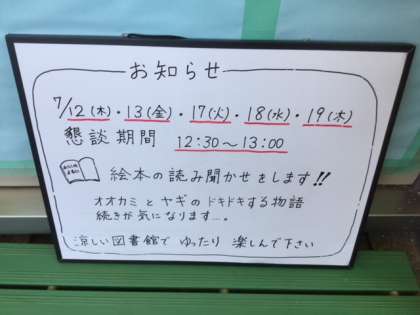 お知らせ
7/12(木)・13(金)・17(火)・18(水)・19(木)
懇談期間 12:30〜13:00
絵本の読み聞かせをします!!
オオカミとヤギのドキドキする物語
続きが気になります…。
涼しい図書館で ゆったり 楽しんで下さい